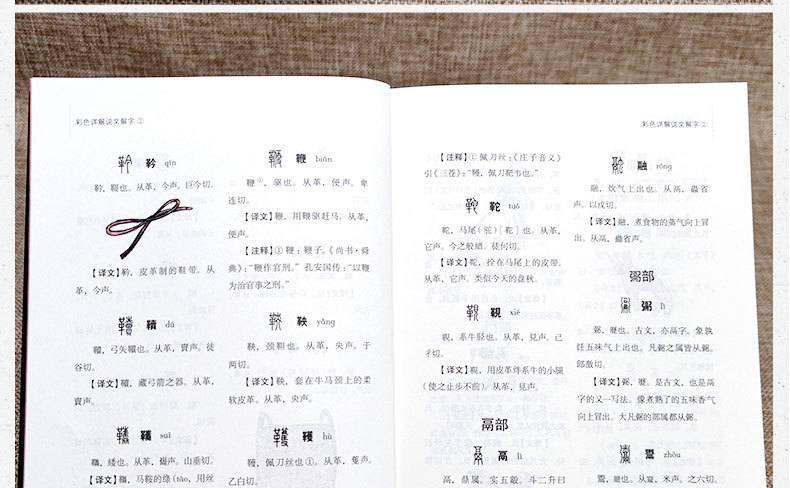 彩色详解说文解字②
靲 qín
靲，鞮也。从革，今声。巨今切。
【译文】靲，皮革制的鞋带。从
革，今声。
韇 dú
韇，弓矢韇也。从革，賣声。徒
谷切。
【译文】韇，藏弓箭之器。从革，
賣声。
suī
绥也。从革，巂声。山垂切。
【译文】 马鞍的绦（tāo，用丝
鞭 biān
鞭①，驱也。从革，便声。卑
连切。
【译文】鞭，用鞭驱赶马。从革，
便声。
【注释】①鞭：鞭子。《尚书·舜
典》：“鞭作官刑。”孔安国传：“以鞭
为治官事之刑。”
鞅 yāng
鞅，颈靼也。从革，央声。于
两切。
【译文】鞅，套在牛马颈上的柔
软皮革。从革，央声。
韄 hù
韄，佩刀丝也①。从革，蒦声。
乙白切。
彩色详解说文解字②
【注释】①佩刀丝：《庄子音义》
引《三苍》：“韄，佩刀靶韦也。”
鞁 tuó
鞁，马尾（驼）［鞁］也。从革，
它声。今之般緧。徒何切。
【译文】鞁，拴在马尾上的皮带。
从革，它声。类似今天的盘秋。
䩤 xié
䩤，系牛胫也。从革，見声。己
彳切。
【译文】䩤，用皮革绊系牛的小腿
（使之止步不前）。从革，見声。
鬲部
鬲 lì
鬲，鼎属。实五觳。斗二升曰
融 róng
融，炊气上出也。从鬲，蟲省
声。以戎切。
【译文】融，煮食物的蒸气向上冒
出。从鬲，蟲省声。
弼部
弼 lì
弼，㽁也。古文，亦鬲字。象孰
飪五味气上出也。凡弼之属皆从弼。
郎激切。
【译文】弼，㽁。是古文，也是鬲
字的又一写法。像煮熟了的五味香气
向上冒出。大凡弼的部属都从弼。
鬻 zhōu
鬻，健也。从 米声。之六切。